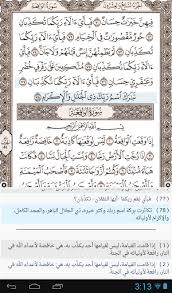 فِيهِنَّ خَيْرَٰتٌ حِسَانٌ ٧٠ فَبِأَيِّ ءَالَآءِ رَبِّكُمَا تُكَذِّبَانِ ٧١
حُورٌ مَّقْصُورَٰتٌ فِي ٱلْخِيَامِ ٧٢ فَبِأَيِّ ءَالَآءِ رَبِّكُمَا
تُكَذِّبَانِ ٧٣ لَمْ يَطْمِثْهُنَّ إِنسٌ قَبْلَهُمْ وَلَا جَآنٌّ ٧٤
فَبِأَيِّ ءَالَآءِ رَبِّكُمَا تُكَذِّبَانِ ٧٥ مُتَّكِـِٔينَ عَلَىٰ رَفْرَفٍ
خُضْرٍ وَعَبْقَرِيٍّ حِسَانٍ ٧٦ فَبِأَيِّ ءَالَآءِ رَبِّكُمَا تُكَذِّبَانِ ٧٧
تَبَٰرَكَ ٱسْمُ رَبِّكَ ذِي ٱلْجَلَٰلِ وَٱلْإِكْرَامِ ٧٨
سُورَةُ الوَاقِعَةِ
بِسْمِ ٱللَّهِ ٱلرَّحْمَٰنِ ٱلرَّحِيمِ
إِذَا وَقَعَتِ ٱلْوَاقِعَةُ ١ لَيْسَ لِوَقْعَتِهَا كَاذِبَةٌ ٢ خَافِضَةٌ رَّافِعَةٌ ٣
{77} فبأي نِعَم ربكما - أيها الثقلان - تكذِّبان؟
{78} تكاثرت بركة اسم ربك وكثر خيره، ذي الجلال الباهر، والمجد الكامل، والإكرام لأوليائه
{1} إذا قامت القيامة، ليس لقيامها أحد يكذِّب به، هي خافضة لأعداء الله في النار، رافعة لأوليائه في الجنة.
{2} إذا قامت القيامة، ليس لقيامها أحد يكذِّب به، هي خافضة لأعداء الله في النار، رافعة لأوليائه في الجنة.
3:13